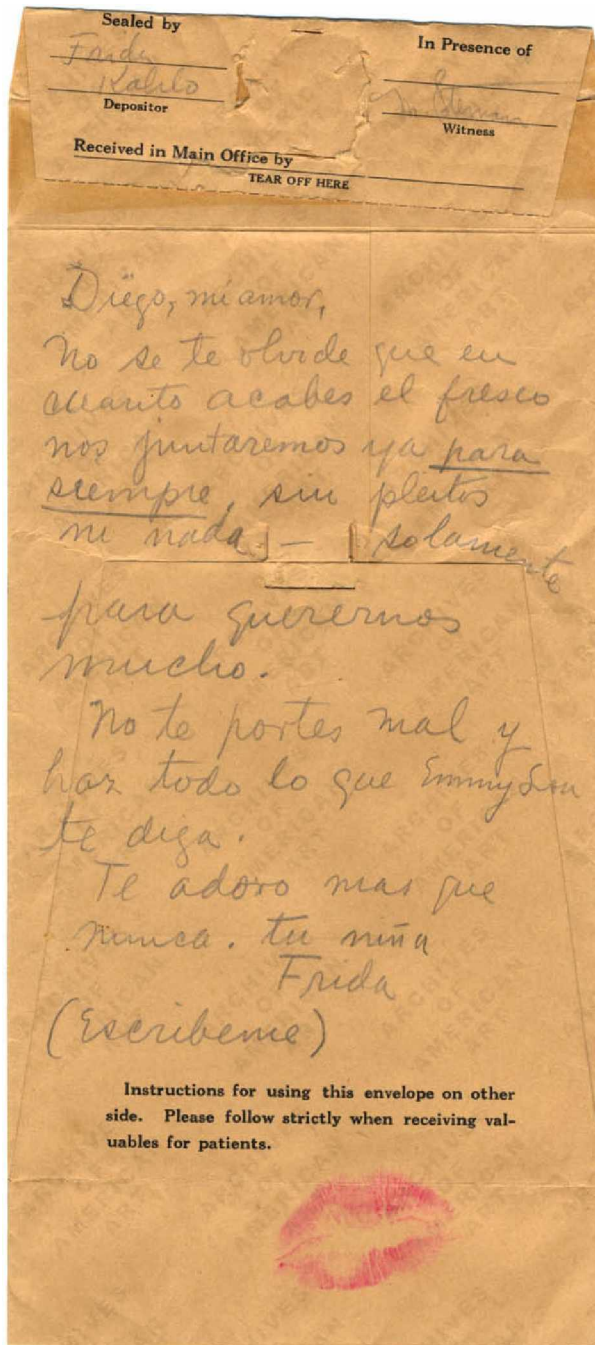 Sealed by
Frida
Kahlo
Depositor
In Presence of
Witness
Received in Main Office by
TEAR OFF HERE
Diego, mi amor,
No se te olvide que en
cuanto acabes el fresco
nos juntaremos ya para
siempre, sin pleitos
ni nada. — solamente
para querernos
mucho.
No te portes mal y
haz todo lo que Emmy Lou
te diga.
Te adoro mas que
nunca. tu niña
Frida
(Escribeme)
Instructions for using this envelope on other
side. Please follow strictly when receiving val-
uables for patients.
ARCHIVES
OF
AMERICAN
ART